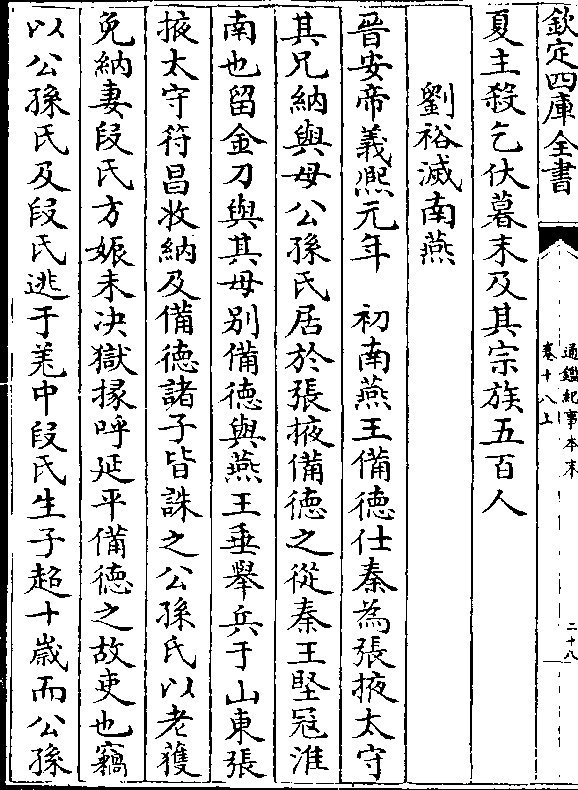 欽定四庫全書
通鑑紀事本末
卷十八上
二十八
夏主殺乞伏暮末及其宗族五百人
劉裕滅南燕
晉安帝義熙元年 初南燕王備德仕秦為張掖太守
其兄納與母公孫氏居於張掖備德之從秦王堅冦淮
南也留金刀與其母别備德與燕王垂舉兵于山東張
掖太守苻昌收納及備德諸子皆誅之公孫氏以老獲
免納妻段氏方娠未决獄掾呼延平備德之故吏也竊
以公孫氏及段氏逃于羌中段氏生子超十歲而公孫